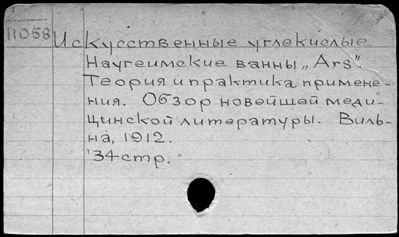 11058
Искусственные углекислые
Наугеимские ванны „Ars".
Теория и практика примене-
ния. Обзор новейшей меди-
цинской литературы. Виль-
на, 1912.
34 стр.